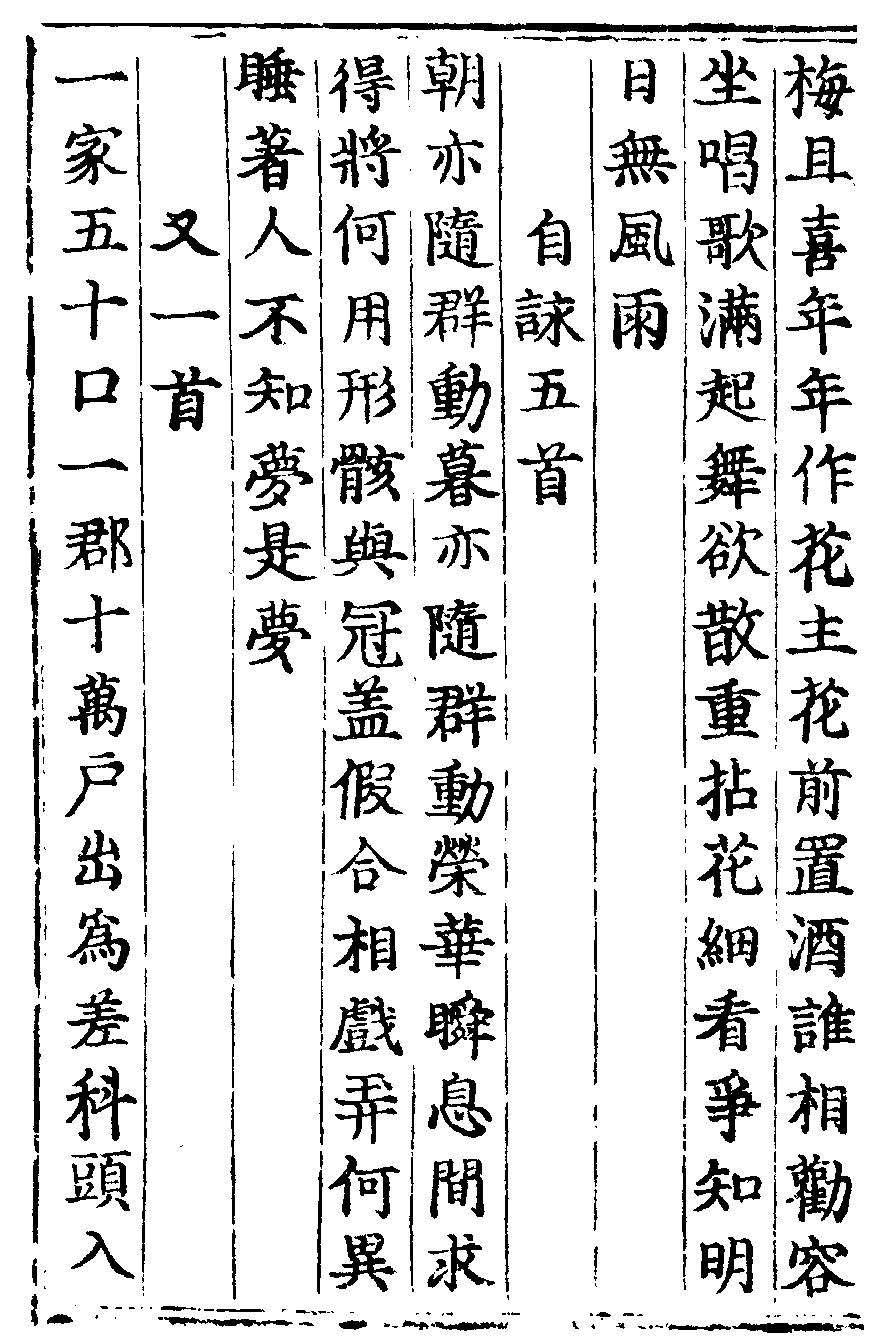 梅且喜年年作花主花前置酒誰相勸容
坐唱歌滿起舞欲散重拈花細看爭知明
日無風雨
自詠五首
朝亦隨群動暮亦隨群動榮華瞬息間求
得將何用形骸與冠盖假合相戲弄何異
睡著人不知夢是夢
又一首
一家五十口一郡十萬戶出為差科頭入